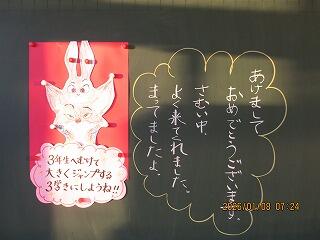 あけまして
おめでとうございます。
さむい中、
よく来てくれました。
まってましたよ。
3年生へむけて
大きくジャンプする
3学きにしようね!!
2025/01/08 07:24